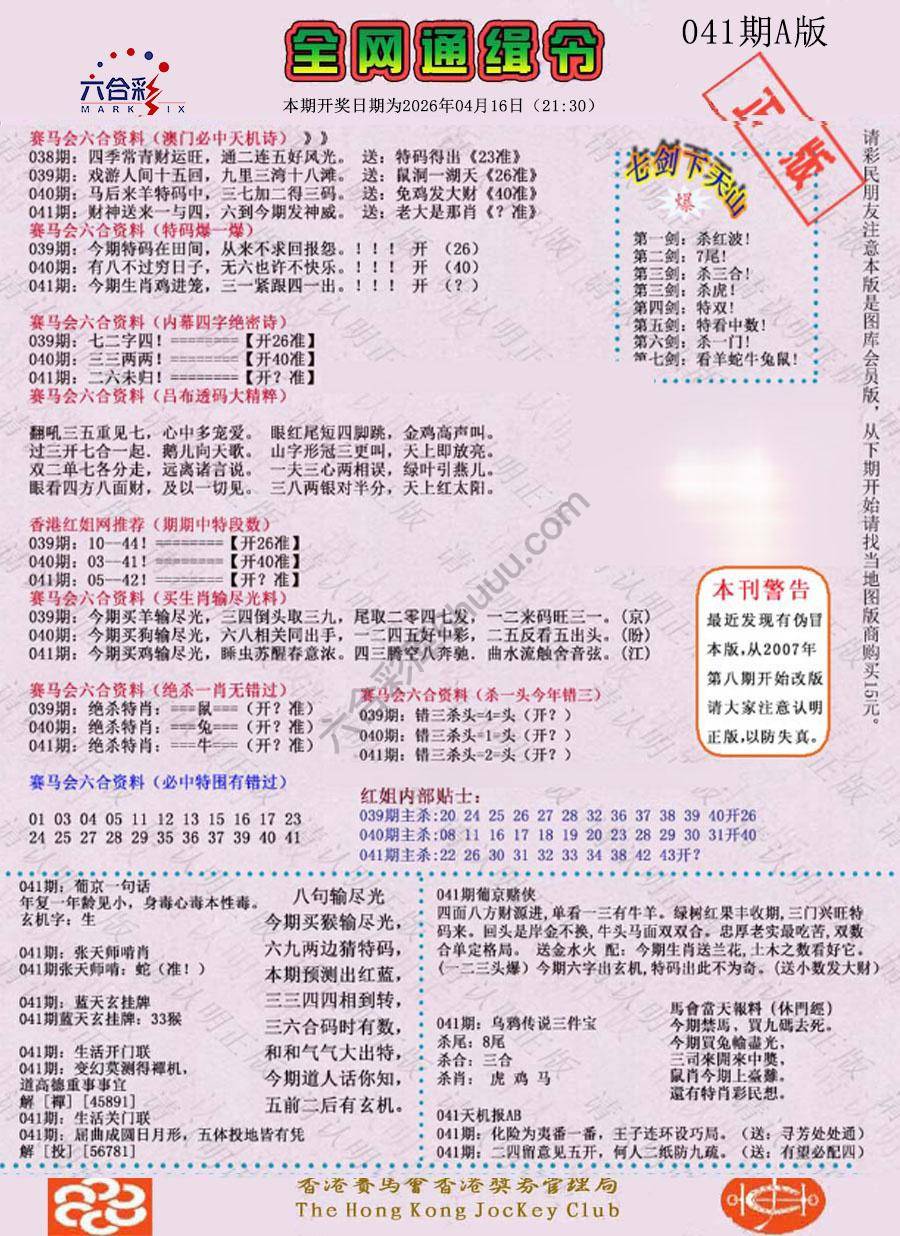 全网通缉令
041期A版
六合彩
MARK SIX
本期开奖日期为2026年04月16日（21:30）
正版
赛马会六合资料（澳门必中天机诗）》》
038期：四季常青财运旺，通二连五好风光。 送：特码得出《23准》
039期：戏游人间十五回，九里三湾十八滩。 送：鼠洞一湖天《26准》
040期：马后来羊特码中，三七加二得三码。 送：免鸡发大财《40准》
041期：财神送来一与四，六到今期发神威。 送：老大是那肖《？准》
赛马会六合资料（特码爆一爆）
039期：今期特码在田间，从来不求回报怨。！！！ 开 （26）
040期：有八不过穷日子，无六也许不快乐。！！！ 开 （40）
041期：今期生肖鸡进笼，三一紧跟四一出。！！！ 开 （？）
七剑下天山
爆
第一剑：杀红波！
第二剑：7尾！
第三剑：杀三合！
第三剑：杀虎！
第四剑：特双！
第五剑：特看中数！
第六剑：杀一门！
第七剑：看羊蛇牛兔鼠！
请彩民朋友注意本版是图库会员版，从下期开始请找当地图版商购买15元。
赛马会六合资料（内幕四字绝密诗）
039期：七二字四！========【开26准】
040期：三三两两！========【开40准】
041期：二六未归！========【开？准】
赛马会六合资料（吕布透码大精粹）
翻吼三五重见七，心中多宠爱。 眼红尾短四脚跳，金鸡高声叫。
过三开七合一起．鹅儿向天歌。 山字形冠三更叫，天上即放亮。
双二单七各分走，远离诸言说。 一夫三心两相误，绿叶引燕儿。
眼看四方八面财，及以一切见。 三八两银对半分，天上红太阳。
香港红姐网推荐（期期中特段数）
039期：10—44！========【开26准】
040期：03—41！========【开40准】
041期：05—42！========【开？准】
赛马会六合资料（买生肖输尽光料）
039期：今期买羊输尽光，三四倒头取三九，尾取二零四七发，一二来码旺三一。(京)
040期：今期买狗输尽光，六八相关同出手，一二四五好中彩，二五反看五出头。(盼)
041期：今期买鸡输尽光，睡虫苏醒春意浓。四三腾空八奔驰．曲水流触舍音弦。(江)
本刊警告
最近发现有伪冒
本版,从2007年
第八期开始改版
请大家注意认明
正版,以防失真。
赛马会六合资料（绝杀一肖无错过）
039期：绝杀特肖：===鼠=——（开？准）
040期：绝杀特肖：===兔=——（开？准）
041期：绝杀特肖：===牛=——（开？准）
赛马会六合资料（杀一头今年错三）
039期：错三杀头=4=头（开？）
040期：错三杀头=1=头（开？）
041期：错三杀头=2=头（开？）
赛马会六合资料（必中特围有错过）
01 03 04 05 11 12 13 15 16 17 23
24 25 27 28 29 35 36 37 39 40 41
红姐内部贴士：
039期主杀:20 24 25 26 27 28 32 36 37 38 39 40开26
040期主杀:08 11 16 17 18 19 20 23 28 29 30 31开40
041期主杀:22 26 30 31 32 33 34 38 42 43开？
041期：葡京一句话
年复一年龄见小，身毒心毒本性毒。
玄机字：生
041期：张天师啃肖
041期张天师啃：蛇（准！）
041期：蓝天玄挂牌
041期蓝天玄挂牌：33猴
041期：生活开门联
041期：变幻莫测得禪机，
道高德重事事宜
解［禪］[45891]
041期：生活关门联
041期：屈曲成圆日月形，五体投地皆有凭
解［投］[56781]
八句输尽光
今期买猴输尽光，
六九两边猜特码，
本期预测出红蓝，
三三四四相到转，
三六合码时有数，
和和气气大出特，
今期道人话你知，
五前二后有玄机。
041期葡京赌侠
四面八方财源进,单看一三有牛羊。绿树红果丰收期,三门兴旺特
码来。回头是岸金不换,牛头马面双双合。忠厚老实最吃苦,双数
合单定格局。 送金水火 配：今期生肖送兰花,土木之数看好它。
(一二三头爆）今期六字出玄机,特码出此不为奇。(送小数发大财)
041期：乌鸦传说三件宝
杀尾：8尾
杀合：三合
杀肖： 虎 鸡 马
馬會當天報料（休門經）
今期禁馬﹑買九碼去死。
今期買兔輸盡光，
三司來開來中獎，
鼠肖今期上臺難。
還有特肖彩民想。
041天机报AB
041期：化险为夷番一番，王子连环设巧局。（送：寻芳处处通）
041期：二四留意见五开，何人二纸防九疏。（送：有望必配四）
香港賽馬會香港獎券管理局
The Hong Kong JocKey Club